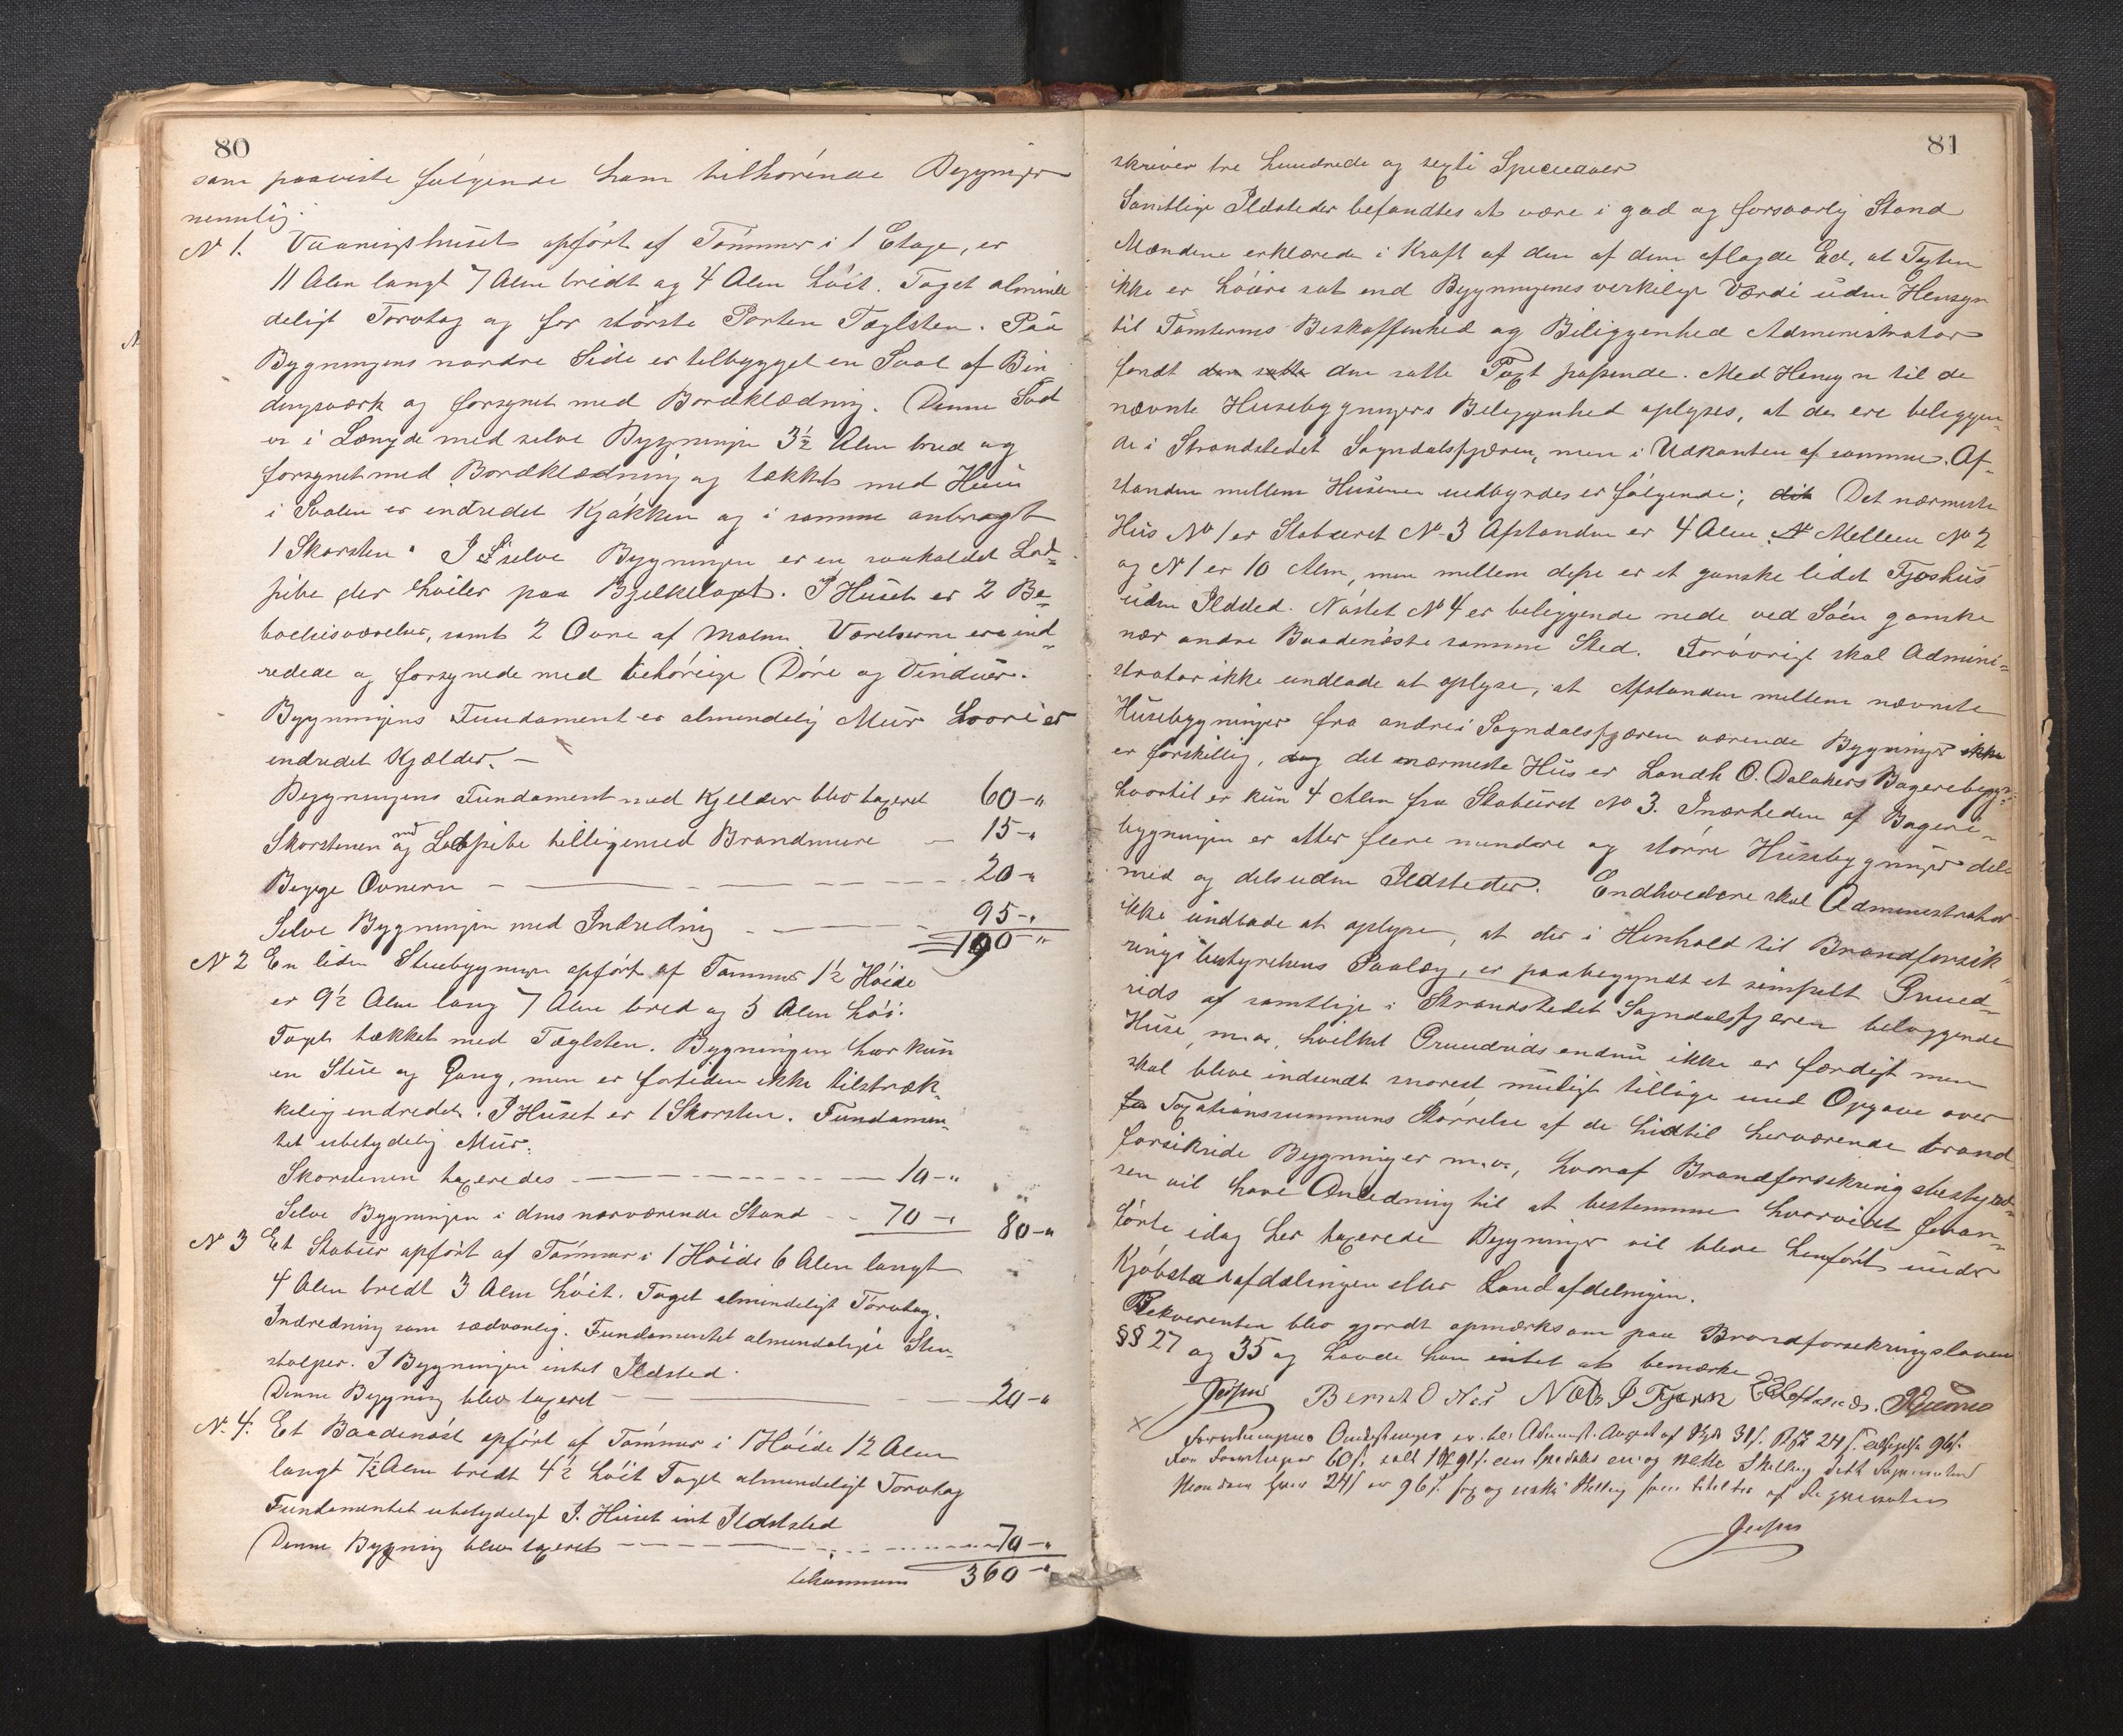 80
som paaviste følgende ham tilhørende Bygninger
nemlig:
N 1. Vaaningshuset opført af Tømmer i 1 Etage, er
11 Alen langt 7 Alen bredt og 4 Alen høit. Taget almin
deligt Torvtag og for største Parten Tæglsten. Paa
Bygningens nordre Side er tilbygget en Sval af Bin
dingsværk og forsynet med Bordklædning. Denne Sval
er i Længde med selve Bygningen 3½ Alen bred og
forsynet med Bordklædning og tækket med Heller
i Svalen er indredet Kjøkken og i samme anbragt
1 Skorsten. I selve Bygningen er en saakaldet Lad-
pibe der hviler paa Bjelkelaget. I Huset er 2 Be-
boelsesværelser, samt 2 Ovne af Malm. Værelserne ere ind-
redede og forsynede med behørige Døre og Vinduer.
Bygningens Fundament er almindelig Mur hvori er
indredet Kjælder. —
Bygningens Fundament med Kjelder blev taxeret 60-"
Skorstenen og Ladpibe tilligemed Brandmure — 15-"
Begge Ovnene — 20-"
Selve Bygningen med Indredning — 95-"
190-"
N 2 En liden Stuebygning opført af Tømmer 1½ Høide
er 9½ Alen lang 7 Alen bred og 5 Alen høi.
Taget tækket med Tæglsten. Bygningen har kun
en Stue og Gang, men er fortiden ikke tilstræk-
kelig indredet. I Huset er 1 Skorsten. Fundamen-
tet ubetydelig Mur.
Skorstenen taxeredes — 10-"
Selve Bygningen i dens nærværende Stand - 70-" 80-"
N 3 Et Stabur opført af Tømmer i 1 Høide 6 Alen langt
4 Alen bredt 3 Alen høit. Taget almindeligt Torvtag.
Indredning som sædvanlig. Fundamentet almindelige Sten-
stolper. I Bygningen intet Ildsted.
Denne Bygning blev taxeret — 20-"
N. 4. Et Baadenøst opført af Tømmer i 1 Høide 12 Alen
langt 7½ Alen bredt 4½ høit Taget almindeligt Torvtag
Fundamentet ubetydeligt I Huset int Ildsted
Denne Bygning blev taxeret — 70-"
tilsammen 360-"
81
skriver tre hundrede og sexti Speciedaler
Samtlige Ildsteder befandtes at være i god og forsvarlig Stand
Mændene erklærede i Kraft af den af dem aflagde Ed, at Taxten
ikke er høiere sat end Bygningenes virkelige Værdi uden Hensyn
til Tomternes Beskaffenhed og Beliggenhed Administrator
fandt den satte den satte Taxt passende. Med Hensyn til de
nævnte Husebygningers Beliggenhed oplyses, at de ere beliggen-
de i Strandstedet Sogndalsfjæren, men i Udkanten af samme. Af-
standen mellem Husene indbyrdes er følgende; det Det nærmeste
Hus No 1 er Staburet No 3 Afstanden er 4 Alen At Mellem No 2
og N 1 er 10 Alen, men mellem disse er et ganske lidet Fjøshus
uden Ildsted. Nøstet No 4 er beliggende nede ved Søen ganske
nær andre Baadenøste samme Sted. Forøvrigt skal Admini-
strator ikke undlade at oplyse, at Afstanden mellem nævnte
Husebygninger fra andre i Sogndalsfjæren værende Bygninger ikke
er forskellig, dog det nærmeste Hus er Landh. O. Dalakers Bageribygn-
hvortil er kun 4 Alen fra Staburet No 3. I Nærheden af Bageri-
bygningen er atter flere mindre og større Husebygninger dels
med og dels uden Ildsteder. Endhvidere skal Administrator
ikke undlade at oplyse, at der i Henhold til Brandforsik-
ringsbestyrelsens Paalæg, er paabegyndt et simpelt Grund-
rids af samtlige i Strandstedet Sogndalsfjæren beliggende
Huse, m. v., hvilket Grundrids endnu ikke er færdigt men
skal blive indsendt snarest muligt tillige med Opgave over
Taxationssummens Størrelse af de hidtil herværende brand
forsikrede Bygninger m. v., hvoraf Brandforsikringsbestyrel-
sen vil have Anledning til at bestemme hvorvidt foran-
førte idag her taxerede Bygninger vil blive henført under
Kjøbstadafdelingen eller Landafdelingen.
Rekvirenten blev gjordt opmærksom paa Brandforsikringsloven
§§ 27 og 35 og havde han intet at bemærke
Jesper Bernt O Nes Nels J Fjern
60 f.
24 f er 96 f.